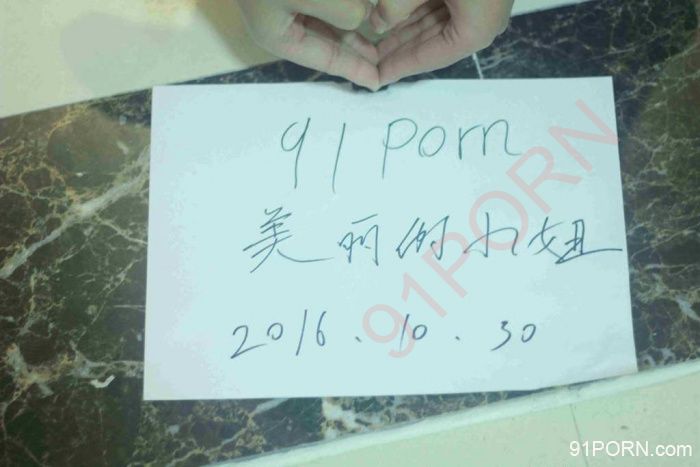 91 porn
美丽的小妞
2016.10.30
91PORN
91PORN.COM